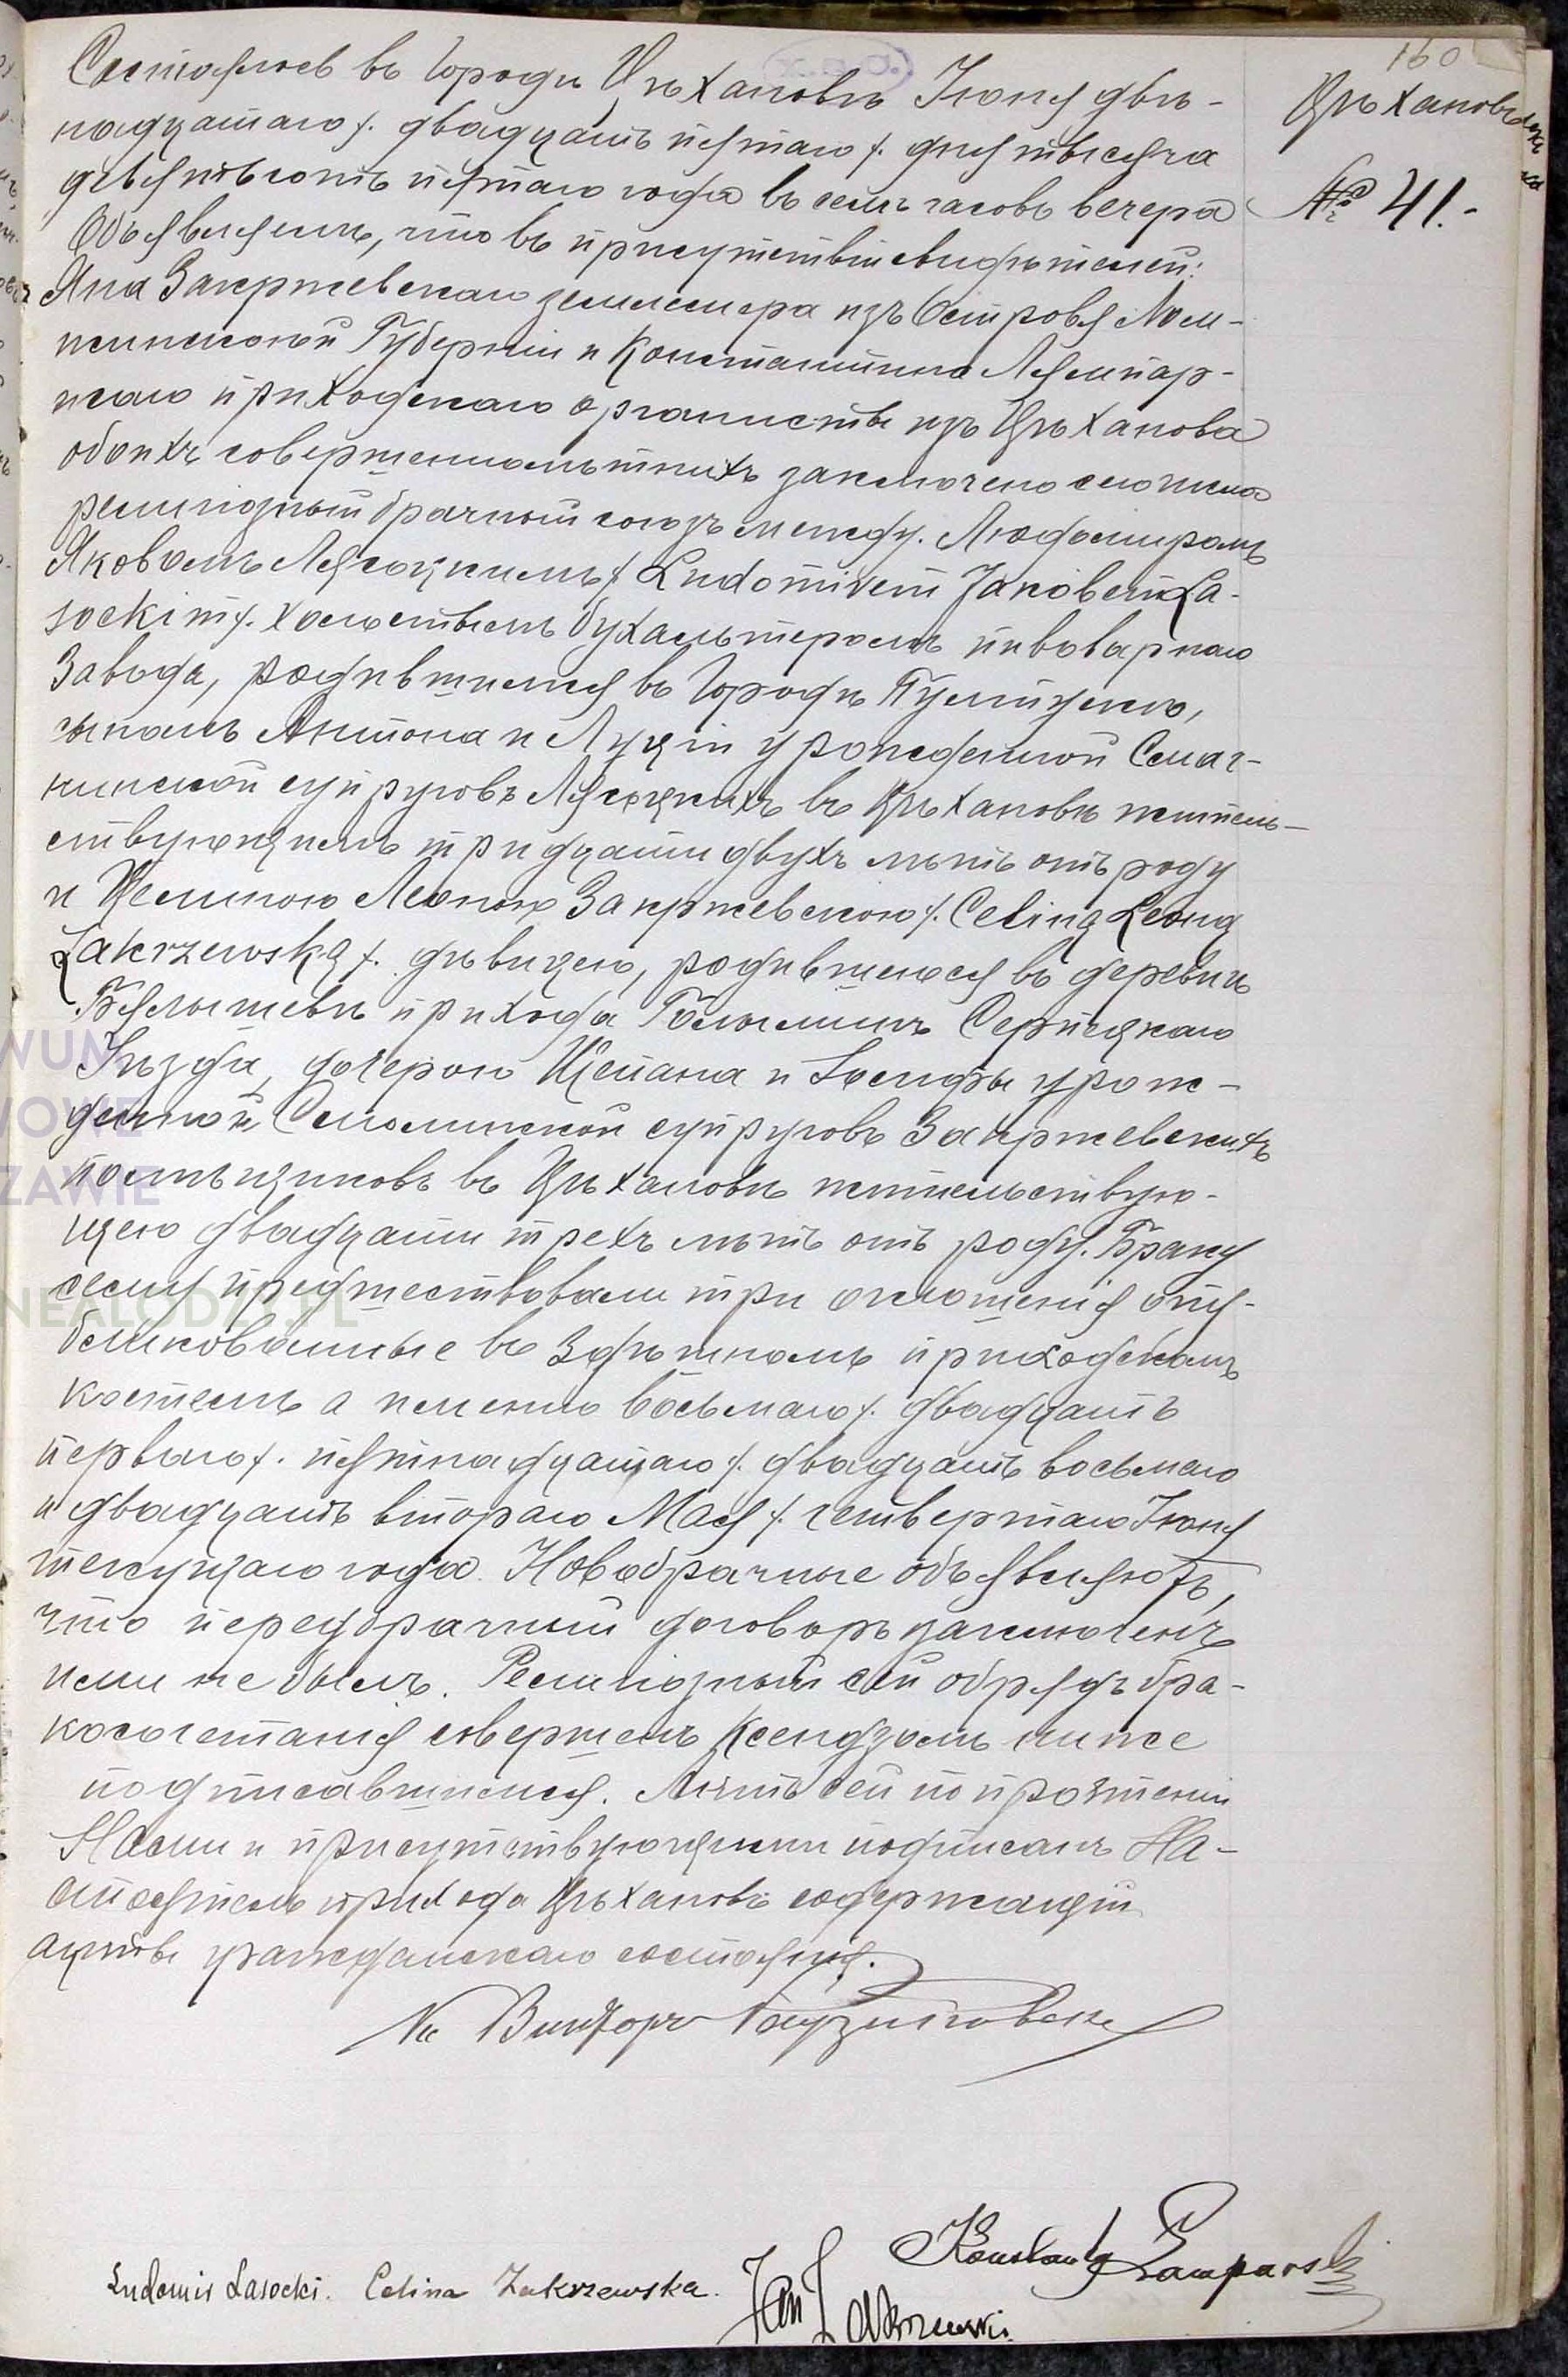 160
Цѣхановъ
№ 41.-
Состоялось въ городѣ Цѣхановѣ Іюня двѣ-
надцатаго /. двадцать пятаго /. дня тысяча
девятьсотъ пятаго года въ семь часовъ вечера
Объявляемъ, что въ присутствіи свидѣтелей:
Яна Закржевскаго землемѣра изъ Острова Лом-
жинской Губерніи и Константина Лямпар-
скаго приходскаго органисты изъ Цѣханова
обоихъ совершеннолѣтнихъ заключено сего числа
религіозный брачный союзъ между. Людомиромъ
Яковомъ Лясоцкимъ /. Ludomirem Jakóbem La-
sockim /. холостымъ бухальтеромъ пивоварнаго
Завода, родившимся въ Городѣ Пултускѣ,
сыномъ Антона и Луціи урожденной Смаг-
жинской супруговъ Лясоцкихъ въ Цѣхановѣ житель-
ствующимъ тридцати двухъ лѣтъ отъ роду
и Целиною Леоною Закржевскою /. Celiną Leoną
Zakrzewską /. дѣвицею, родившеюся въ деревнѣ
прихода Серпецкаго
Уѣзда, дочерью Щепана и урож-
денной Смолинской супруговъ Закржевскихъ
помѣщиковъ въ Цѣхановѣ жительствую-
щею двадцати трехъ лѣтъ отъ роду. Браку
сему предшествовали три оглашенія опу-
бликованные въ Здѣшнемъ приходскомъ
костелѣ а именно восьмаго /. двадцать
перваго /. пятнадцатаго /. двадцать восьмаго
и двадцать втораго Мая /. четвертаго Іюня
текущаго года. Новобрачные объявляютъ,
что передбрачный договоръ заключенъ
ими не былъ. Религіозный сей обрядъ бра-
косочетанія совершенъ Ксендзомъ ниже
подписавшимся. Актъ сей по прочтеніи
Нами и присутствующими подписанъ На-
стоятель прихода Цѣхановъ содержащій
акты гражданскаго состоянія.
Кс Викторъ
Konstanty Lamparski
Ludomir Lasocki. Celina Zakrzewska.
Jan Zakrzewski.